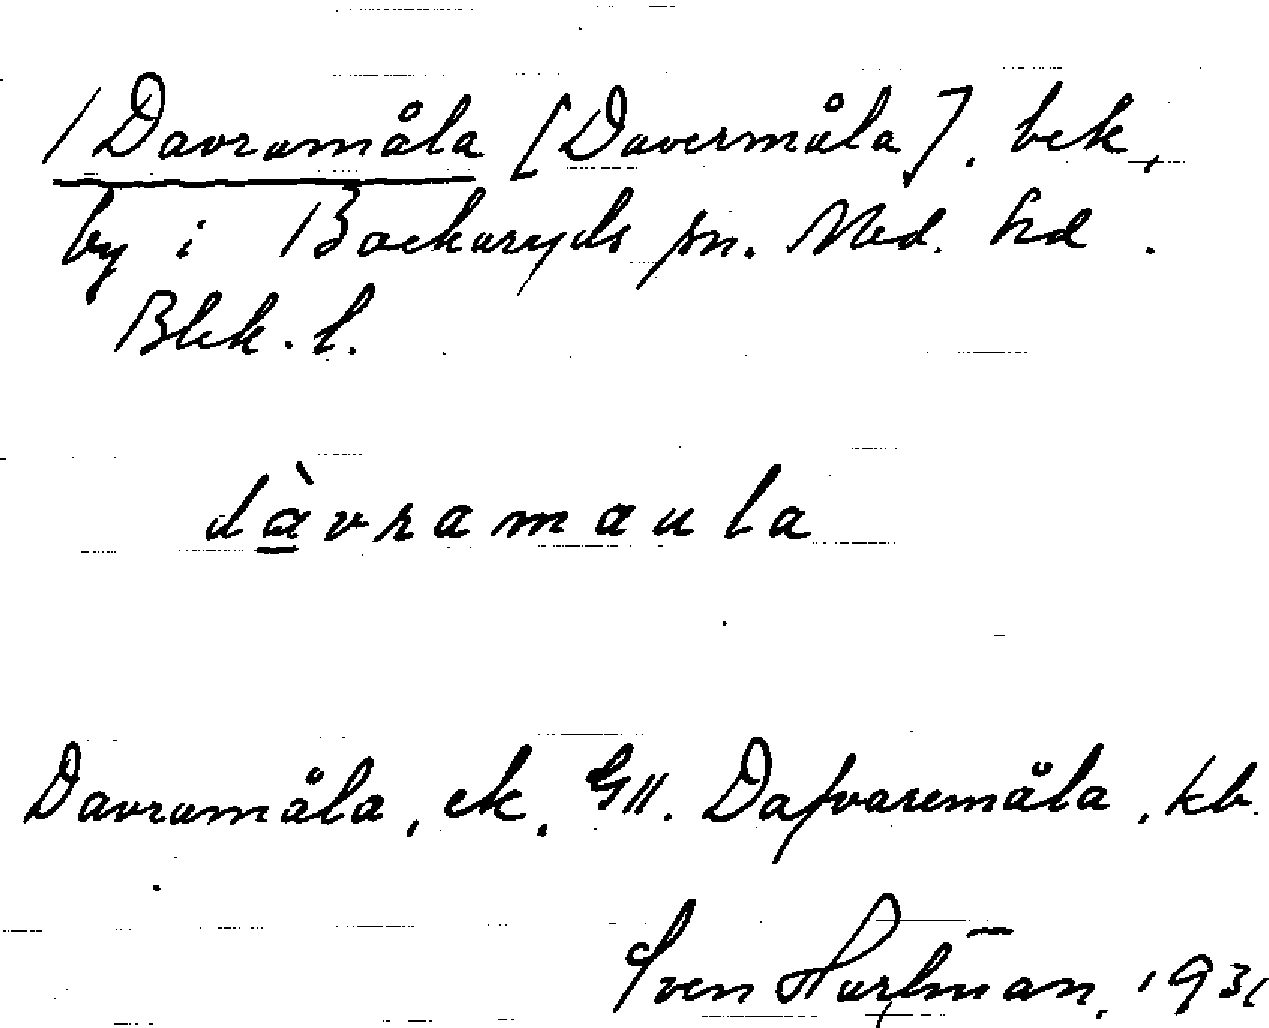 Davramåla [Davermåla]. bek.
by i Backaryds sn. Med. hd.
Blek. l.
dàvramaula
Davramåla, ek. GII. Dafvaremåla, kb.
Sven Hartman, 1931